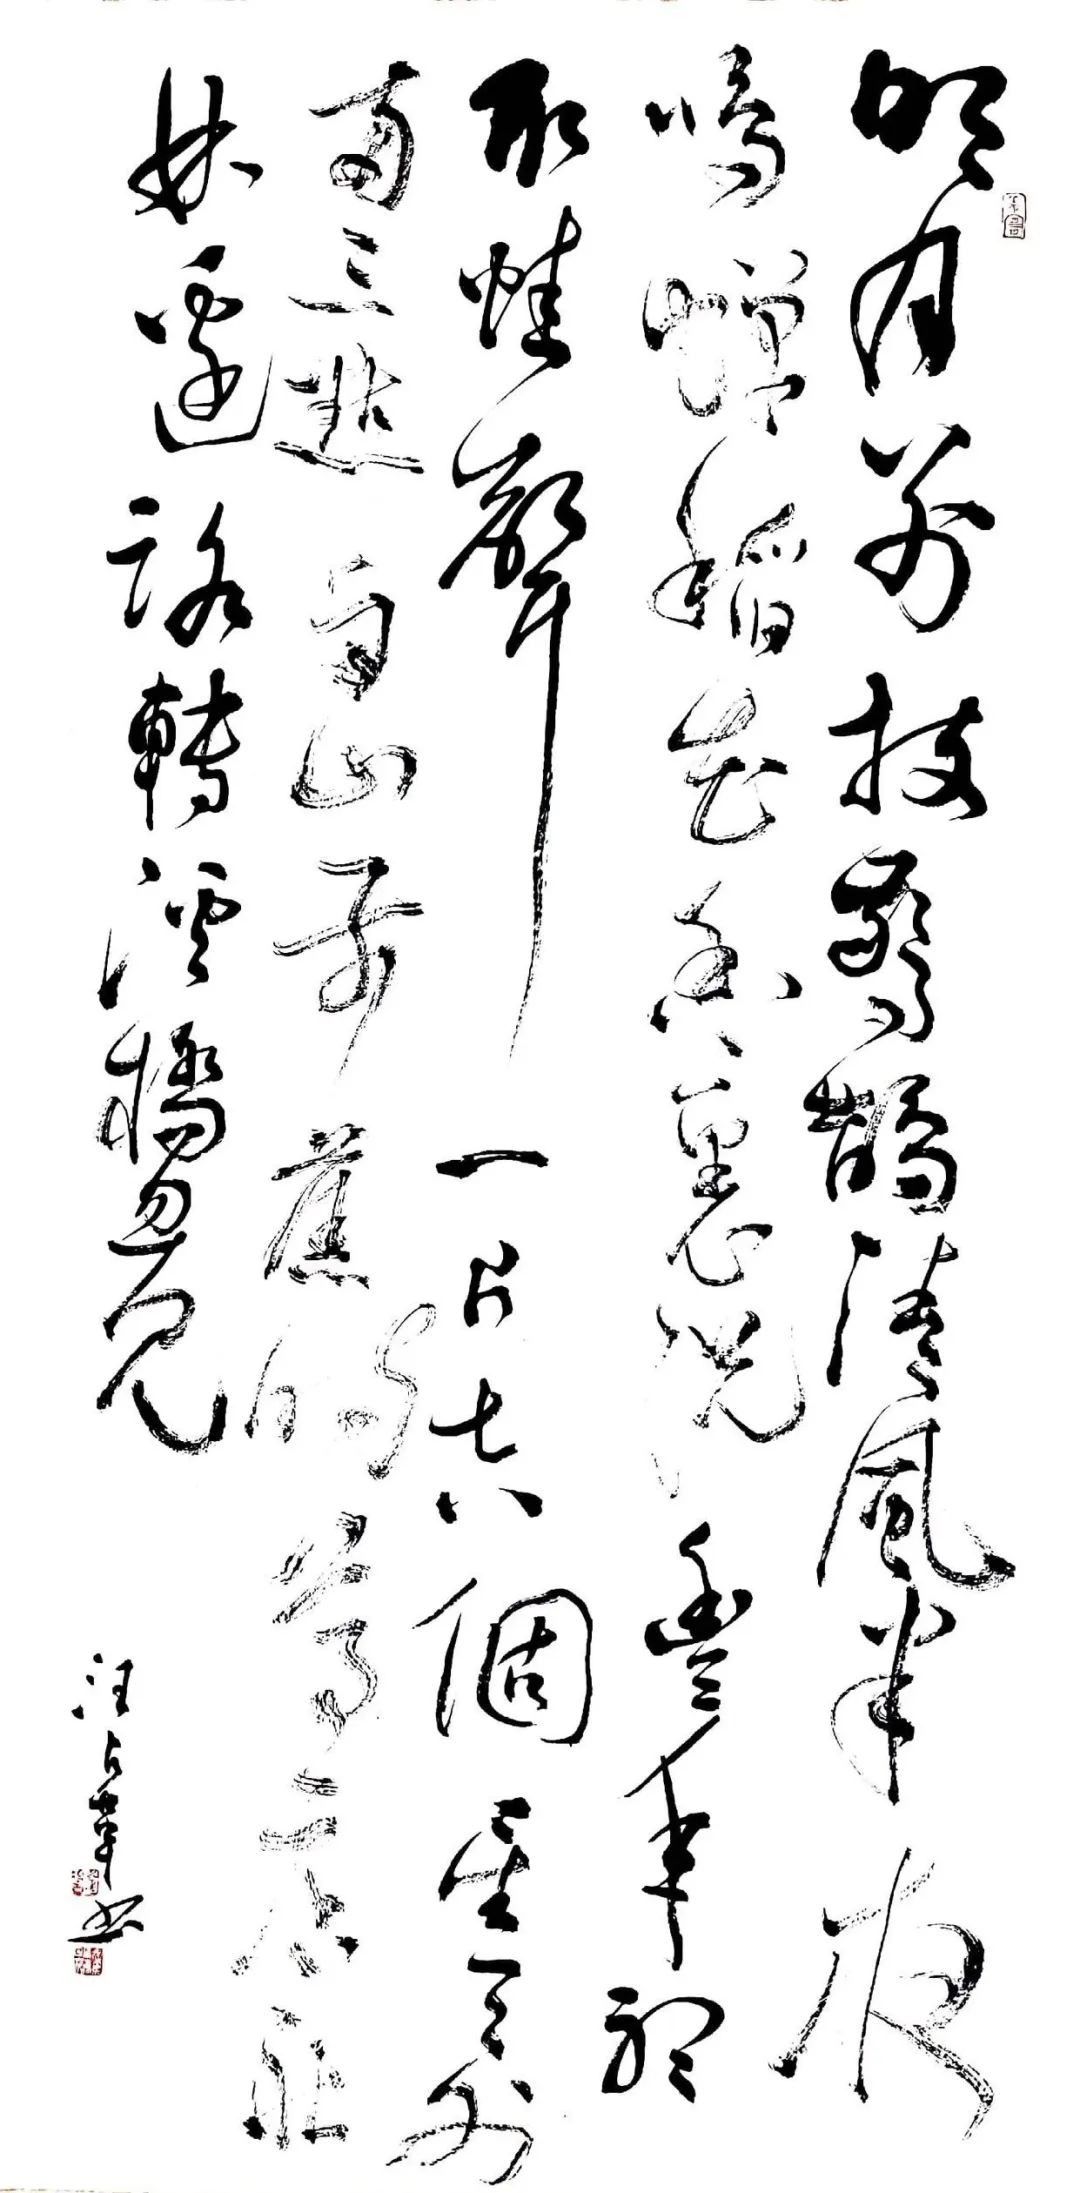 明月别枝驚鵲清風半夜
鳴蟬稻花香裏說豐年聽
取蛙聲一片七八個星天外
兩三點雨山前舊時茅店社
林邊路轉溪橋忽見
汪占书